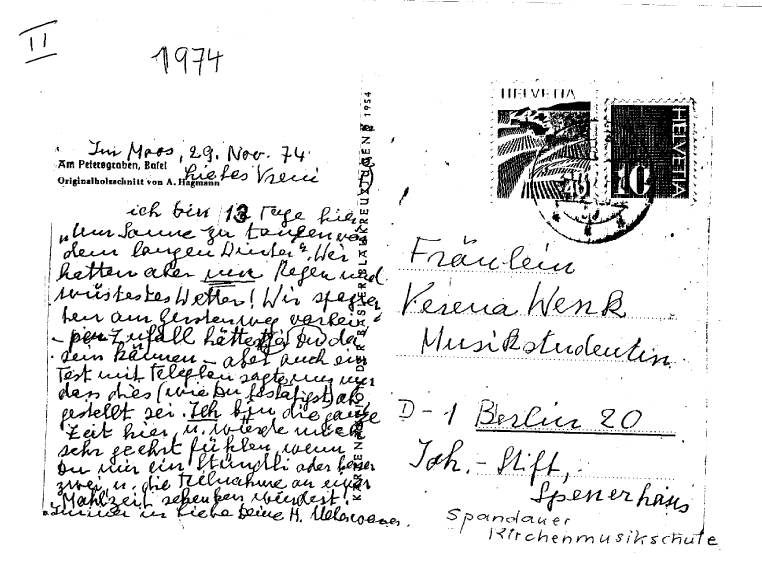 II
1974
Im Moos, 29. Nov. 74
Am Petersgraben, Basel
Originalholzschnitt von A. Hagmann
Liebes Vreni
ich bin 13 Tage hier
"Um Sonne zu tanken vor
dem langen Winter". Wir
hatten aber nur Regen und
wüstestes Wetter! Wir
am vorbei
- per Zufall hättest ja Du da
sein können - aber auch ein
Test mit Telephon sagte uns nur
dass dies (wie Du bestätigst) ab
gestellt sei. Ich bin die ganze
Zeit hier, u. würde mich
sehr geehrt fühlen, wenn
Du mir ein Stündli oder besser
zwei u. die Teilnahme an einer
Mahlzeit schenken würdest!
Immer in Liebe Deine H.
KARTENSERIE DER BASLER BLAUKREUZJUGEND 1954
HELVETIA
HELVETIA
10
Fräulein
Verena Wenk
Musikstudentin
D-1 Berlin 20
Joh.-Stift,
Spenerhaus
Spandauer
Kirchenmusikschule